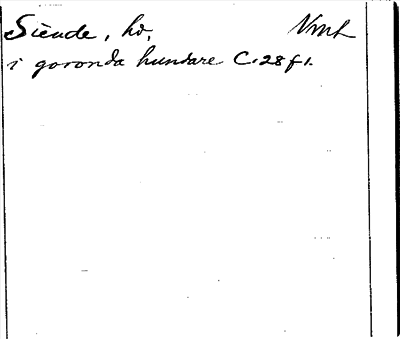 Siende, hd. Vml
i goronda hundare C. 28 f 1.